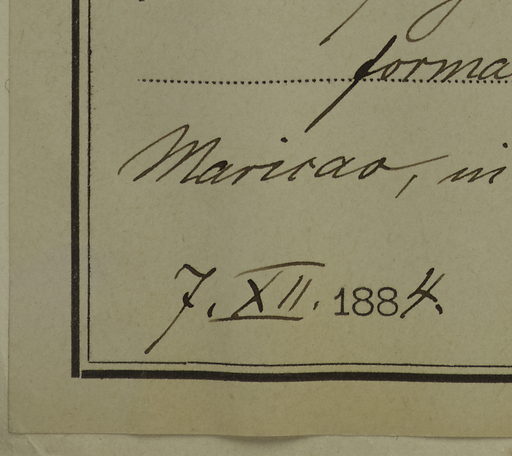 forma
Maricao, in
7. XII. 1884.